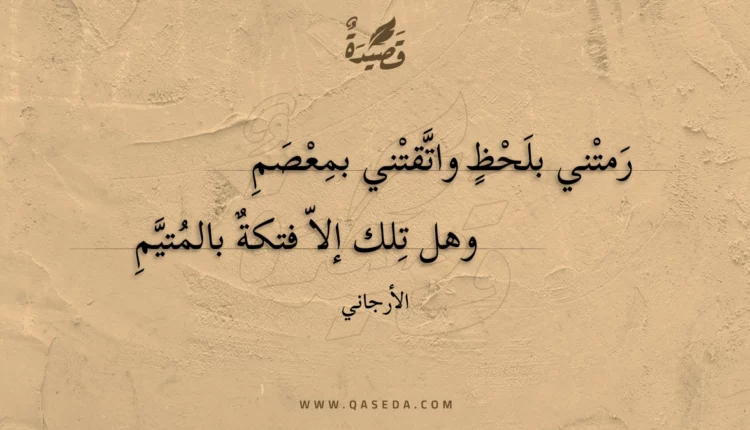 قَصِيْدَةٌ
رَمتْني بلَحْظٍ واتَّقتْني بمِعْصَمِ
وهل تِلك إلاّ فتكةٌ بالمُتيَّمِ
الأرجاني
WWW.QASEDA.COM